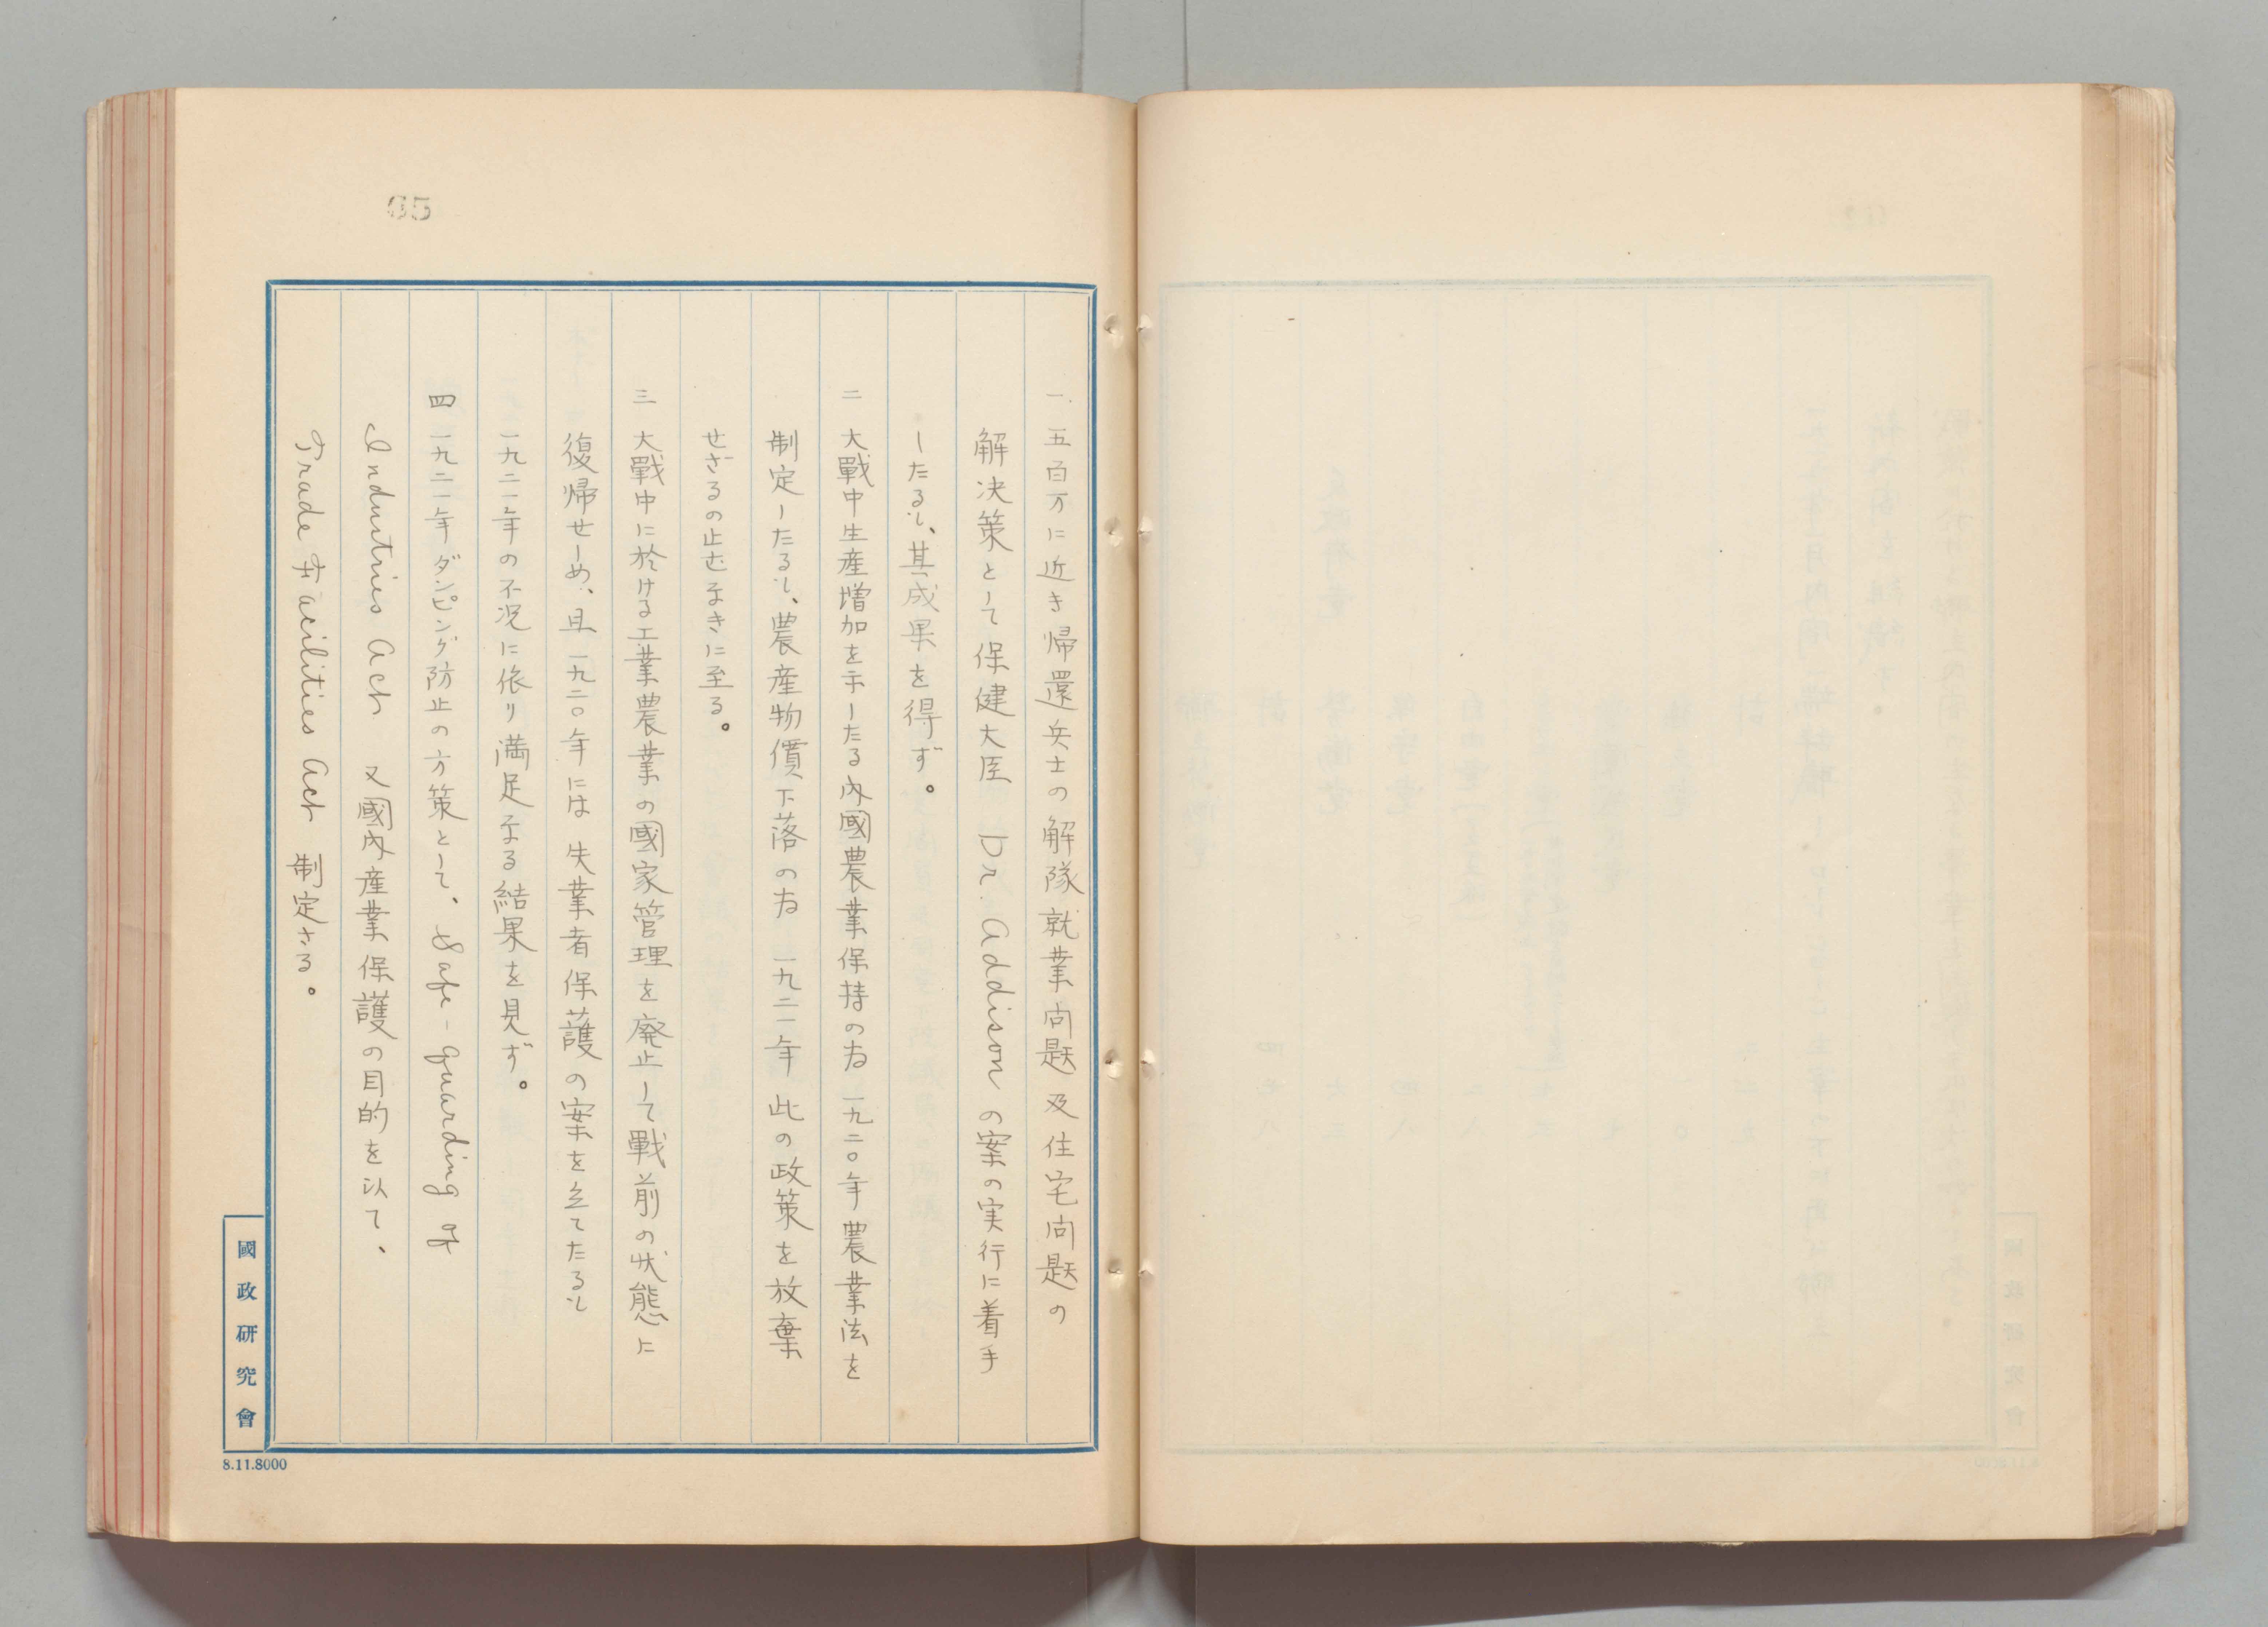 65
一 五百万に近き帰還兵士の解隊就業问題及住宅问題の
解決策として保健大臣 Dr. Addison の案の実行に着手
したるも、其成果を得ず。
二 大戰中生産増加を示したる內國農業保持の為一九二〇年農業法を
制定したるも、農産物價下落の為 一九二一年 此の政策を放棄
せざるの止むなきに至る。
三 大戰中に於ける工業農業の國家管理を廃止して戰前の状態に
復帰せしめ、且一九二〇年には 失業者保護の案を立てたるも
一九二一年の不況に依り満足なる結果を見ず。
四 一九二一年ダンピング防止の方策として、Safe-guarding of
Industries Act 又國內産業保護の目的を以て、
Trade Facilities Act 制定さる。
國政研究會
8.11.8000